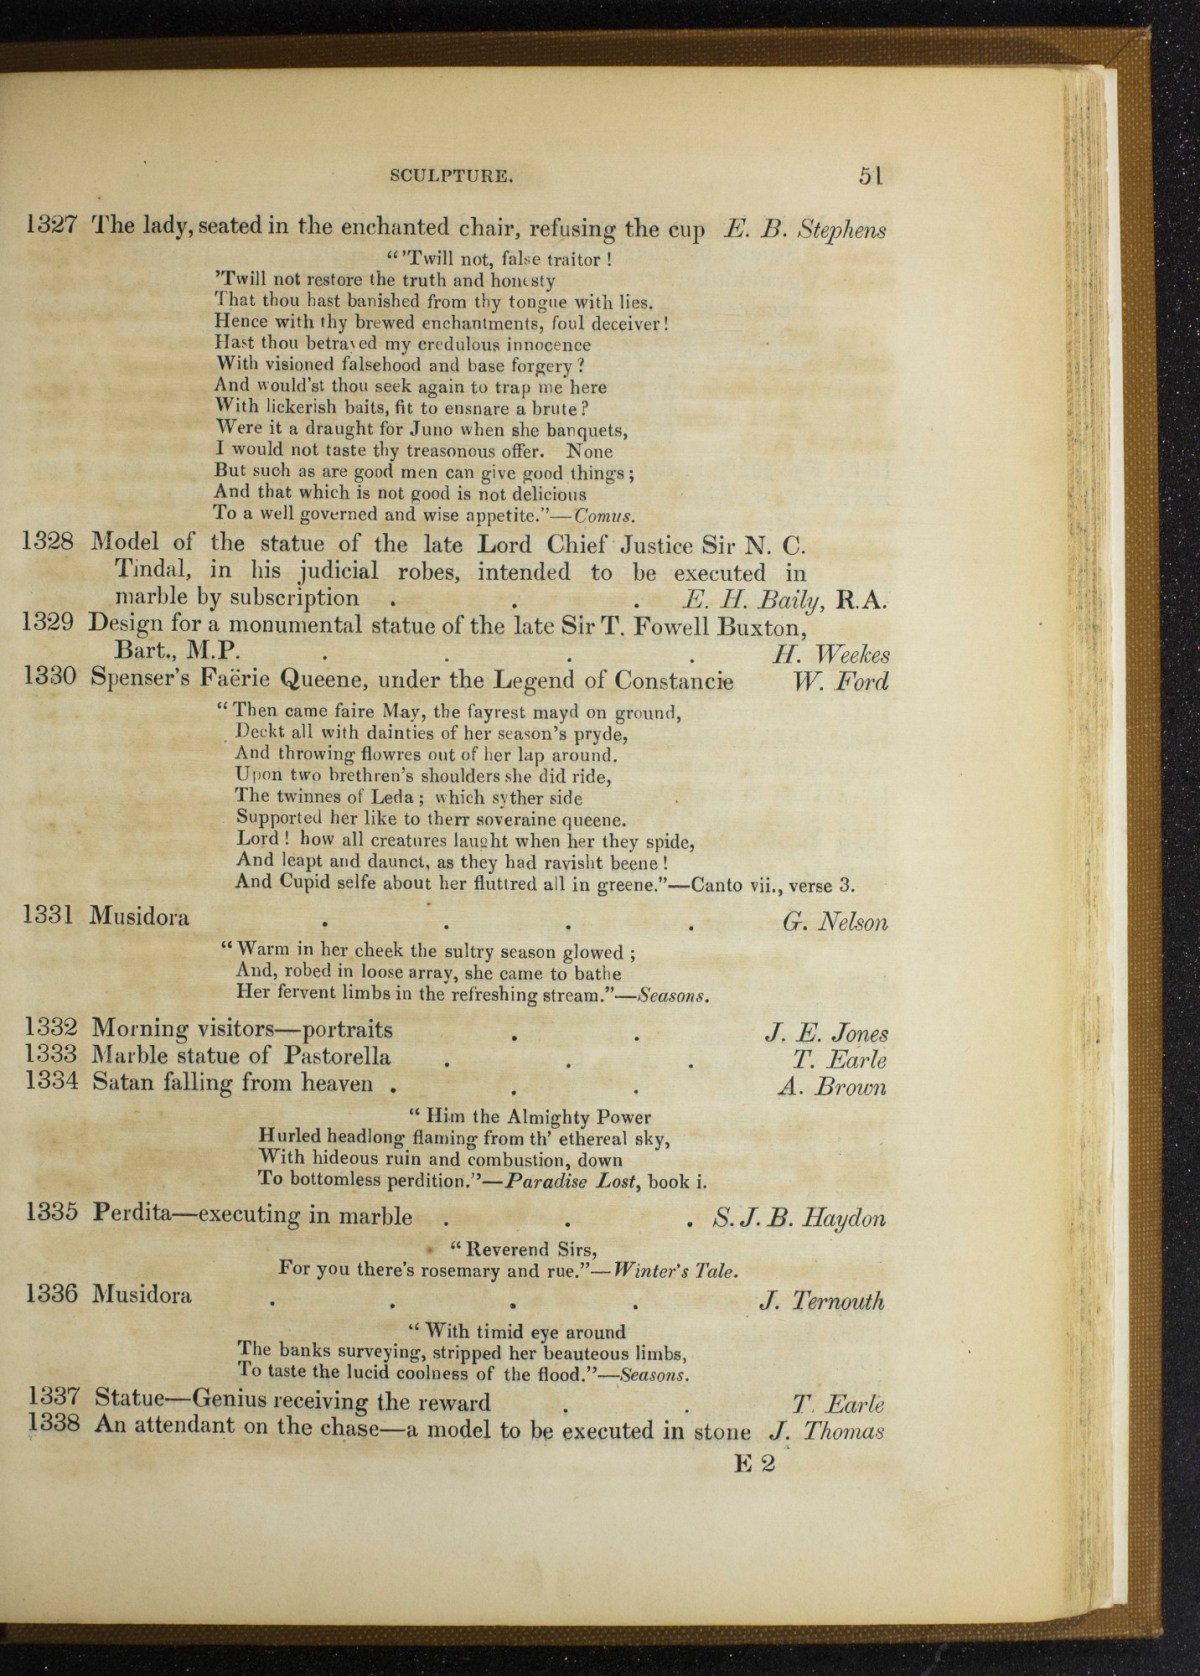 SCULPTURE. 51
1327 The lady, seated in the enchanted chair, refusing the cup E. B. Stephens
“’Twill not, false traitor !
’Twill not restore the truth and honesty
That thou hast banished from thy tongue with lies.
Hence with thy brewed enchantments, foul deceiver!
Hast thou betrayed my credulous innocence
With visioned falsehood and base forgery ?
And would’st thou seek again to trap me here
With lickerish baits, fit to ensnare a brute?
Were it a draught for Juno when she banquets,
I would not taste thy treasonous offer. None
But such as are good men can give good things;
And that which is not good is not delicious
To a well governed and wise appetite.”—Comus.
1328 Model of the statue of the late Lord Chief Justice Sir N. C.
Tindal, in his judicial robes, intended to be executed in
marble by subscription . . . E. H. Baily, R.A.
1329 Design for a monumental statue of the late Sir T. Fowell Buxton,
Bart., M.P. . . . . H. Weekes
1330 Spenser’s Faërie Queene, under the Legend of Constancie W. Ford
“Then came faire May, the fayrest mayd on ground,
Deckt all with dainties of her season’s pryde,
And throwing flowres out of her lap around.
Upon two brethren’s shoulders she did ride,
The twinnes of Leda ; which syther side
Supported her like to therr soveraine queene.
Lord ! how all creatures laught when her they spide,
And leapt and daunct, as they had ravisht beene !
And Cupid selfe about her fluttred all in greene.”—Canto vii., verse 3.
1331 Musidora . . . . G. Nelson
“Warm in her cheek the sultry season glowed ;
And, robed in loose array, she came to bathe
Her fervent limbs in the refreshing stream.”—Seasons.
1332 Morning visitors—portraits . . J. E. Jones
1333 Marble statue of Pastorella . . . T. Earle
1334 Satan falling from heaven . . . A. Brown
“ Him the Almighty Power
Hurled headlong flaming from th’ ethereal sky,
With hideous ruin and combustion, down
To bottomless perdition.”—Paradise Lost, book i.
1335 Perdita—executing in marble . . . S. J. B. Haydon
“Reverend Sirs,
For you there’s rosemary and rue.”—Winter’s Tale.
1336 Musidora . . . . J. Ternouth
“With timid eye around
The banks surveying, stripped her beauteous limbs,
To taste the lucid coolness of the flood.”—Seasons.
1337 Statue—Genius receiving the reward . . T. Earle
1338 An attendant on the chase—a model to be executed in stone J. Thomas
E 2